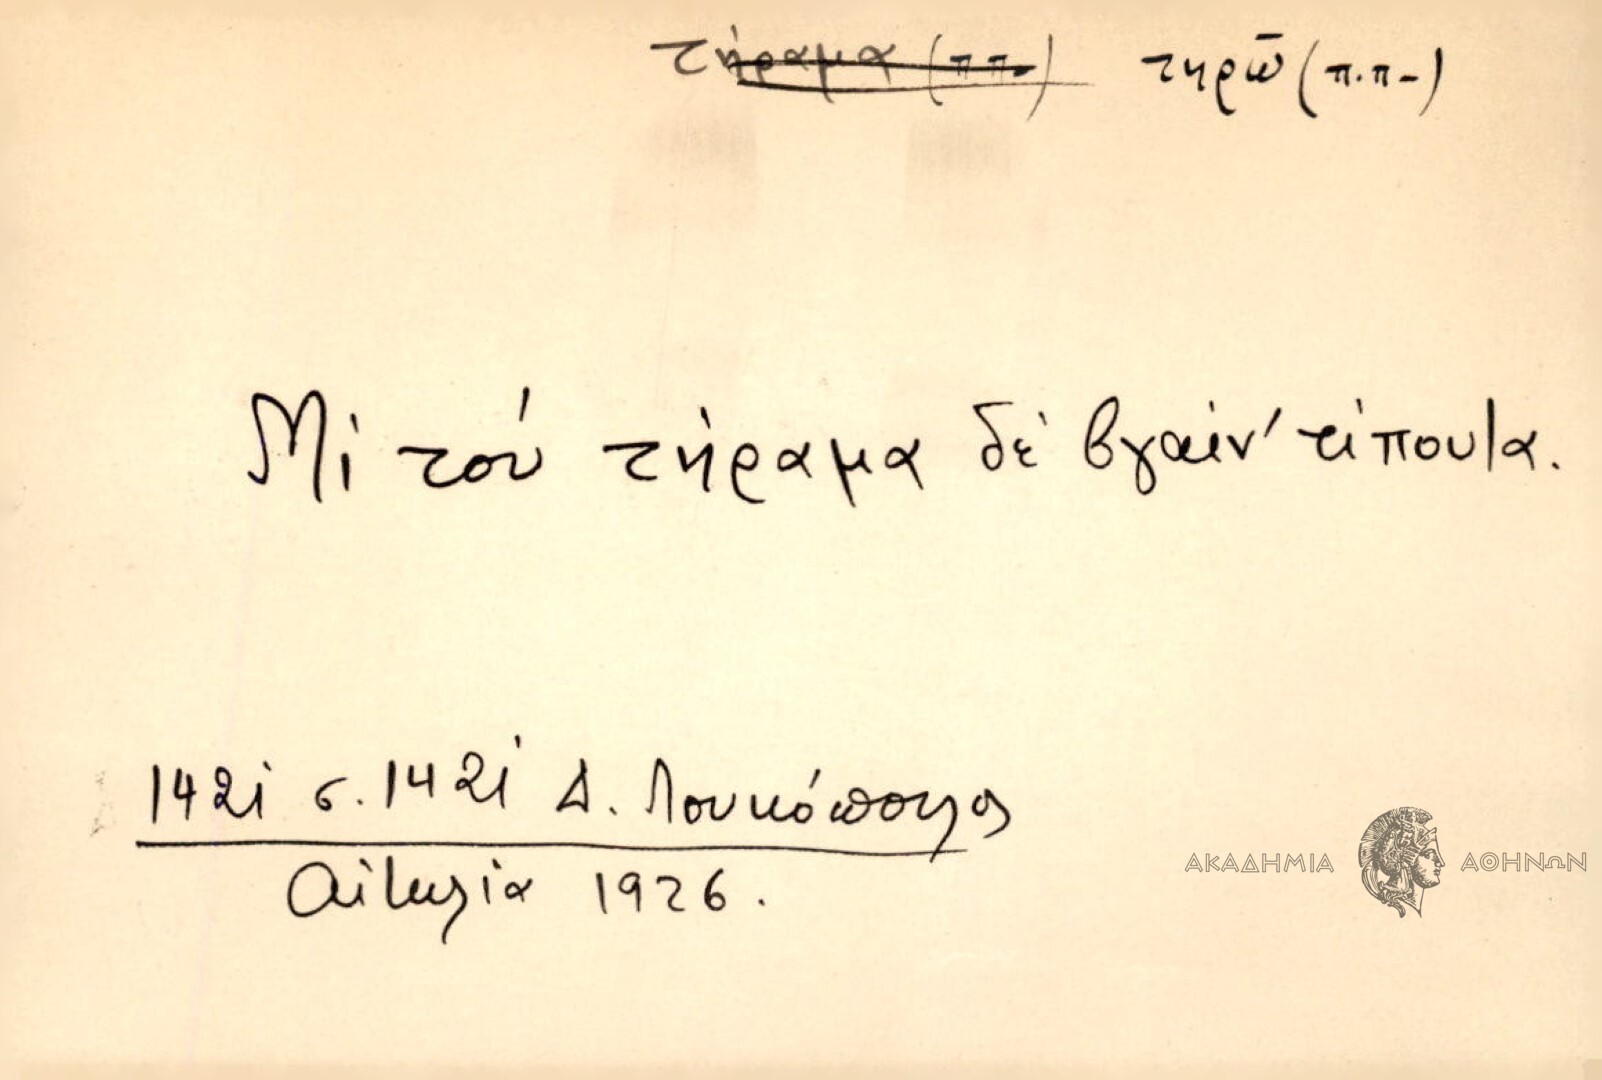 τήραμα (π.π.-) τηρῶ (π.π.-)
Μὶ τοὺ τήραμα δὲ βγαίν' τίπουτα.
1421 σ. 1421 Δ. Λουκόπουλος
Αἰτωλία 1926.
ΑΚΑΔΗΜΙΑ ΑΘΗΝΩΝ